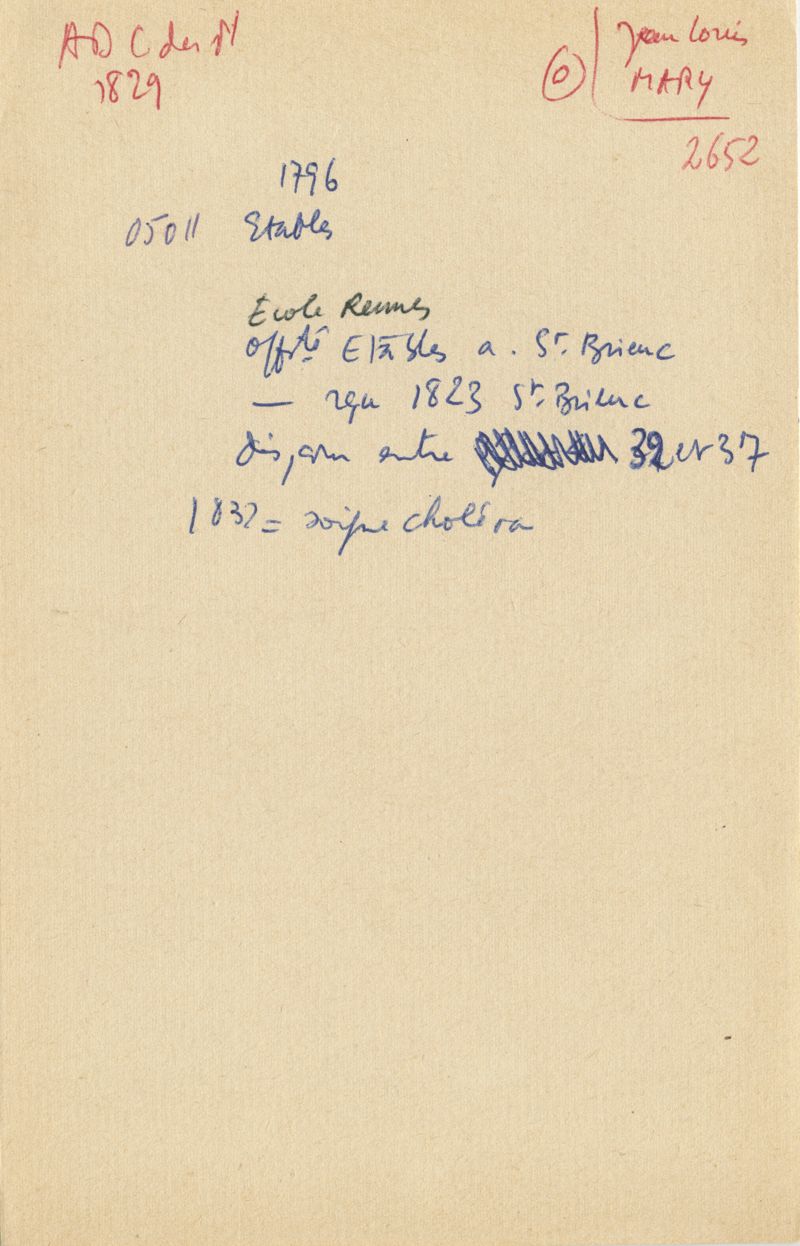 AD C du N
1829
Jean Louis
MARY
2652
1796
05011 Etables
Ecole Rennes
offté Etables a. St. Brieuc
— reçu 1823 St. Brieuc
disparu entre 32 et 37
1832 = soigne choléra